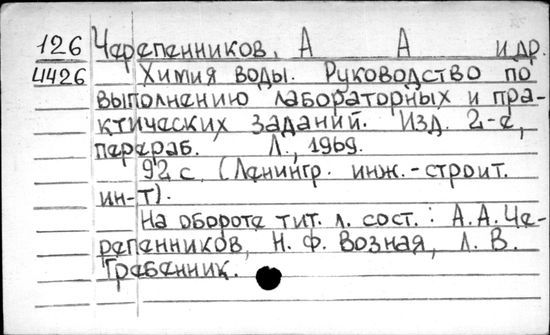 126 Черепенников, А А и др.
4426 Химия воды. Руководство по
выполнению лабораторных и пра-
ктических заданий. Изд. 2-е,
перераб. Л., 1969.
92 с. (Ленингр. инж.-строит.
ин-т).
На обороте тит. л. сост.: А.А. Че-
репенников, Н. Ф. Возная, Л. В.
Гребенник.